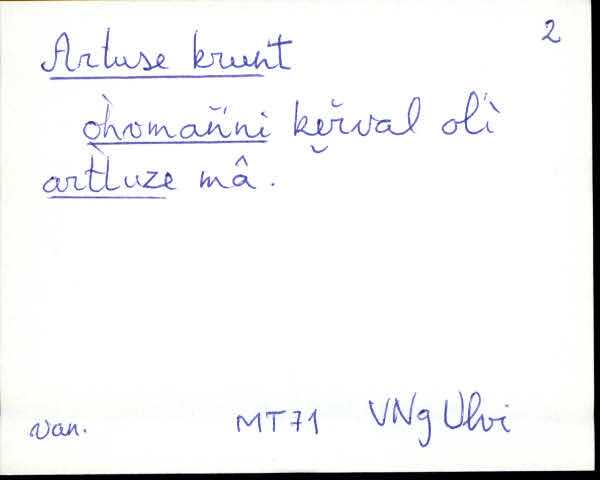 2
Artuse krunt
òhvmaǹ̀ni kĕ̮rval oĺì
artt̀luze mâ.
van. MT71 VNg Ulvi